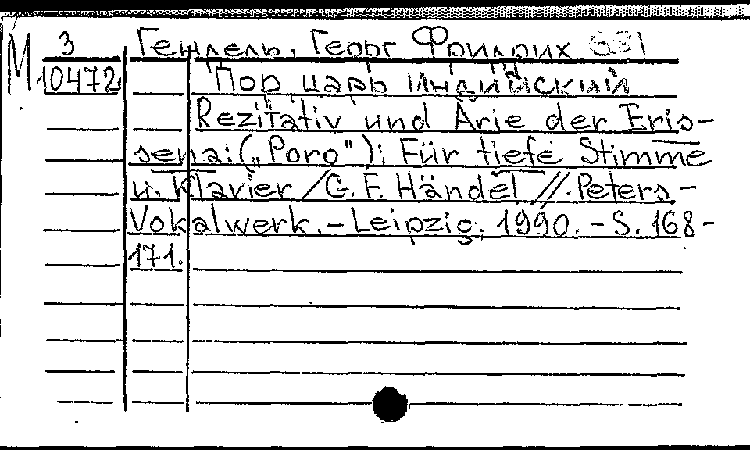 М 3 Гендель, Георг Фридрих
10472 Пор царь индийский
Rezitativ und Arie der Eris-
sena: („Poro"): Für tiefe Stimme
u. Klavier / G. F. Händel //. Peters-
Vokalwerk. - Leipzig, 1990. - S. 168-
171.